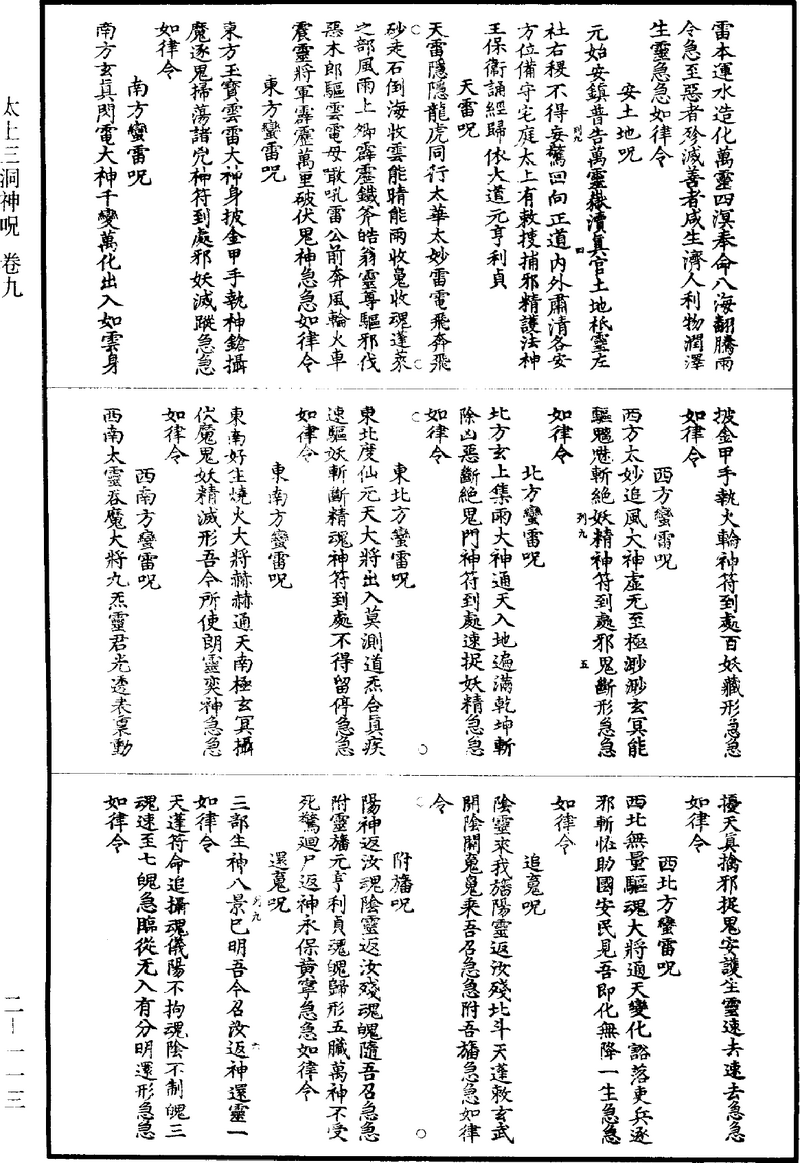 太上三洞神呪 卷九
二—一一三
雷本運水造化萬靈四溟奉命八海翻騰雨
令急至惡者殄滅善者咸生濟人利物潤澤
生靈急急如律令
安土地呪
元始安鎮普告萬靈嶽瀆真官土地祇靈左
社右稷不得妄驚回向正道內外肅清各安
方位備守宅庭太上有敕搜捕邪精護法神
王保衛誦經歸依大道元亨利貞
天雷呪
天雷隱隱龍虎同行太華太妙雷電飛奔飛
砂走石倒海收雲能晴能雨收鬼收魂蓬萊
之部風雨上卿霹靂鐵斧皓翁靈尊驅邪伐
惡木郎驅雲電母噉吼雷公前奔風輪火車
震靈將軍霹靂萬里破伏鬼神急急如律令
東方蠻雷呪
東方玉寶雲雷大神身披金甲手執神鎗攝
魔逐鬼掃蕩諸兇神符到處邪妖滅蹤急急
如律令
南方蠻雷呪
南方玄真閃電大神千變萬化出入如雲身
披金甲手執火輪神符到處百妖藏形急急
如律令
西方蠻雷呪
西方太妙追風大神虛无至極渺渺玄冥能
驅魑魅斬絕妖精神符到處邪鬼斷形急急
如律令
北方蠻雷呪
北方玄上集雨大神通天入地遍滿乾坤斬
除凶惡斷絕鬼門神符到處速捉妖精急急
如律令
東北方蠻雷呪
東北度仙元天大將出入莫測道炁合真疾
速驅妖斬斷精魂神符到處不得留停急急
如律令
東南方蠻雷呪
東南好生燒火大將赫赫通天南極玄冥攝
伏魔鬼妖精滅形吾令所使朗靈奕神急急
如律令
西南方蠻雷呪
西南太靈吞魔大將九炁靈君光透表裏動
擾天真擒邪捉鬼安護生靈速去速去急急
如律令
西北方蠻雷呪
西北無量驅魂大將通天變化豁落吏兵逐
邪斬怪助國安民見吾即化無降一生急急
如律令
追魂呪
陰靈來我旛陽靈返汝殘北斗天蓬敕玄武
開陰關鬼鬼乘吾召急急附吾旛急急如律
令
附旛呪
陽神返汝魂陰靈返汝殘魂魄隨吾召急急
附靈旛元亨利貞魂魄歸形五臟萬神不受
死驚迴尸返神永保黃寧急急如律令
還魂呪
三部生神八景已明吾今召汝返神還靈一
如律令
天蓬符命追攝魂儀陽不拘魂陰不制魄三
魂速至七魄急臨從无入有分明還形急急
如律令